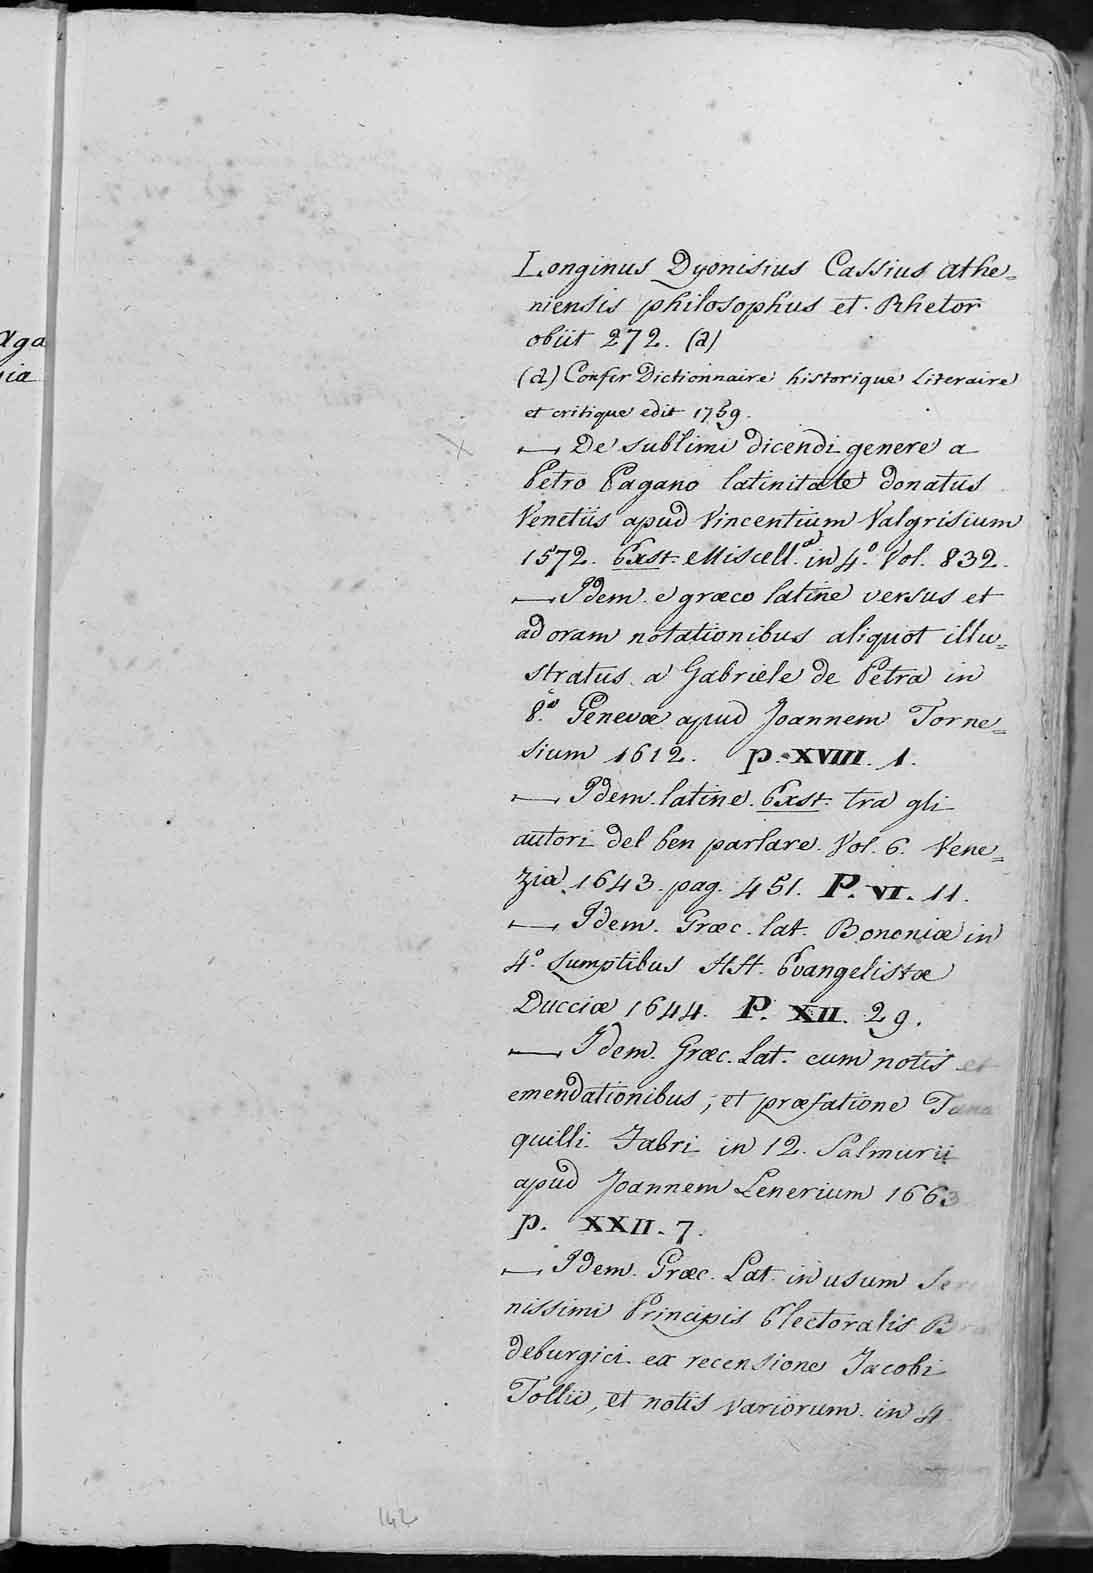 aga
ia
Longinus Dyonisius Cassius athe=
niensis philosophus et Rhetor
obiit 272. (a)
(a) Confer Dictionnaire historique Literaire
et critique edit 1759.
— De sublimi dicendi genere a
Petro Pagano latinitate donatus
Venetiis apud Vincentium Valgrisium
1572. Exst. Miscell.ª in 4.º Vol. 832.
— Idem e græco latine versus et
ad oram notationibus aliquot illu=
stratus a Gabriele de Petra in
8.º Genevæ apud Joannem Torne=
sium 1612. p. XVIII. 1.
— Idem latine. Exst. tra gli
autori del ben parlare. Vol. 6. Vene=
zia 1643. pag. 451. P. VI. 11.
— Idem. Græc. lat. Bononiæ in
4.º sumptibus HH. Evangelistæ
Ducciæ 1644. P. XII. 29.
— Idem. Græc. Lat. cum notis et
emendationibus, et præfatione Tana
quilli Fabri in 12. Salmurii
apud Joannem Lenerium 1663
p. XXII. 7.
— Idem. Græc. Lat. in usum Sere
nissimi Principis Electoralis Bra
deburgici ex recensione Jacobi
Tollii, et notis variorum in 4
142